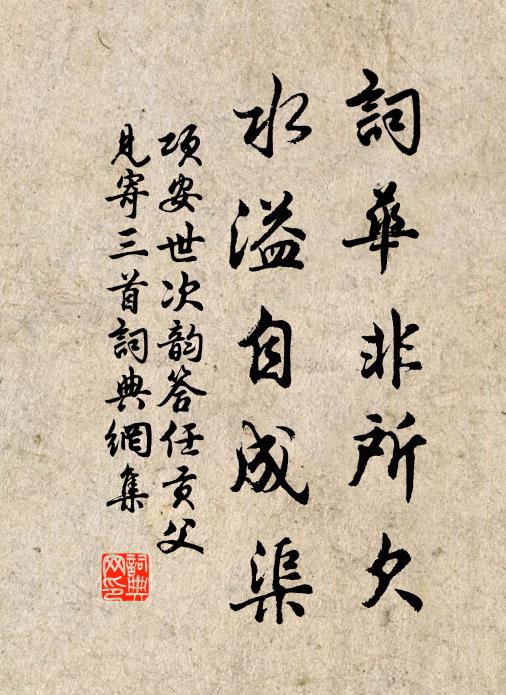 詞華非所欠
水溢自成渠
項安世次韵答任貢父
見寄三首詞典網集
詞典
网印